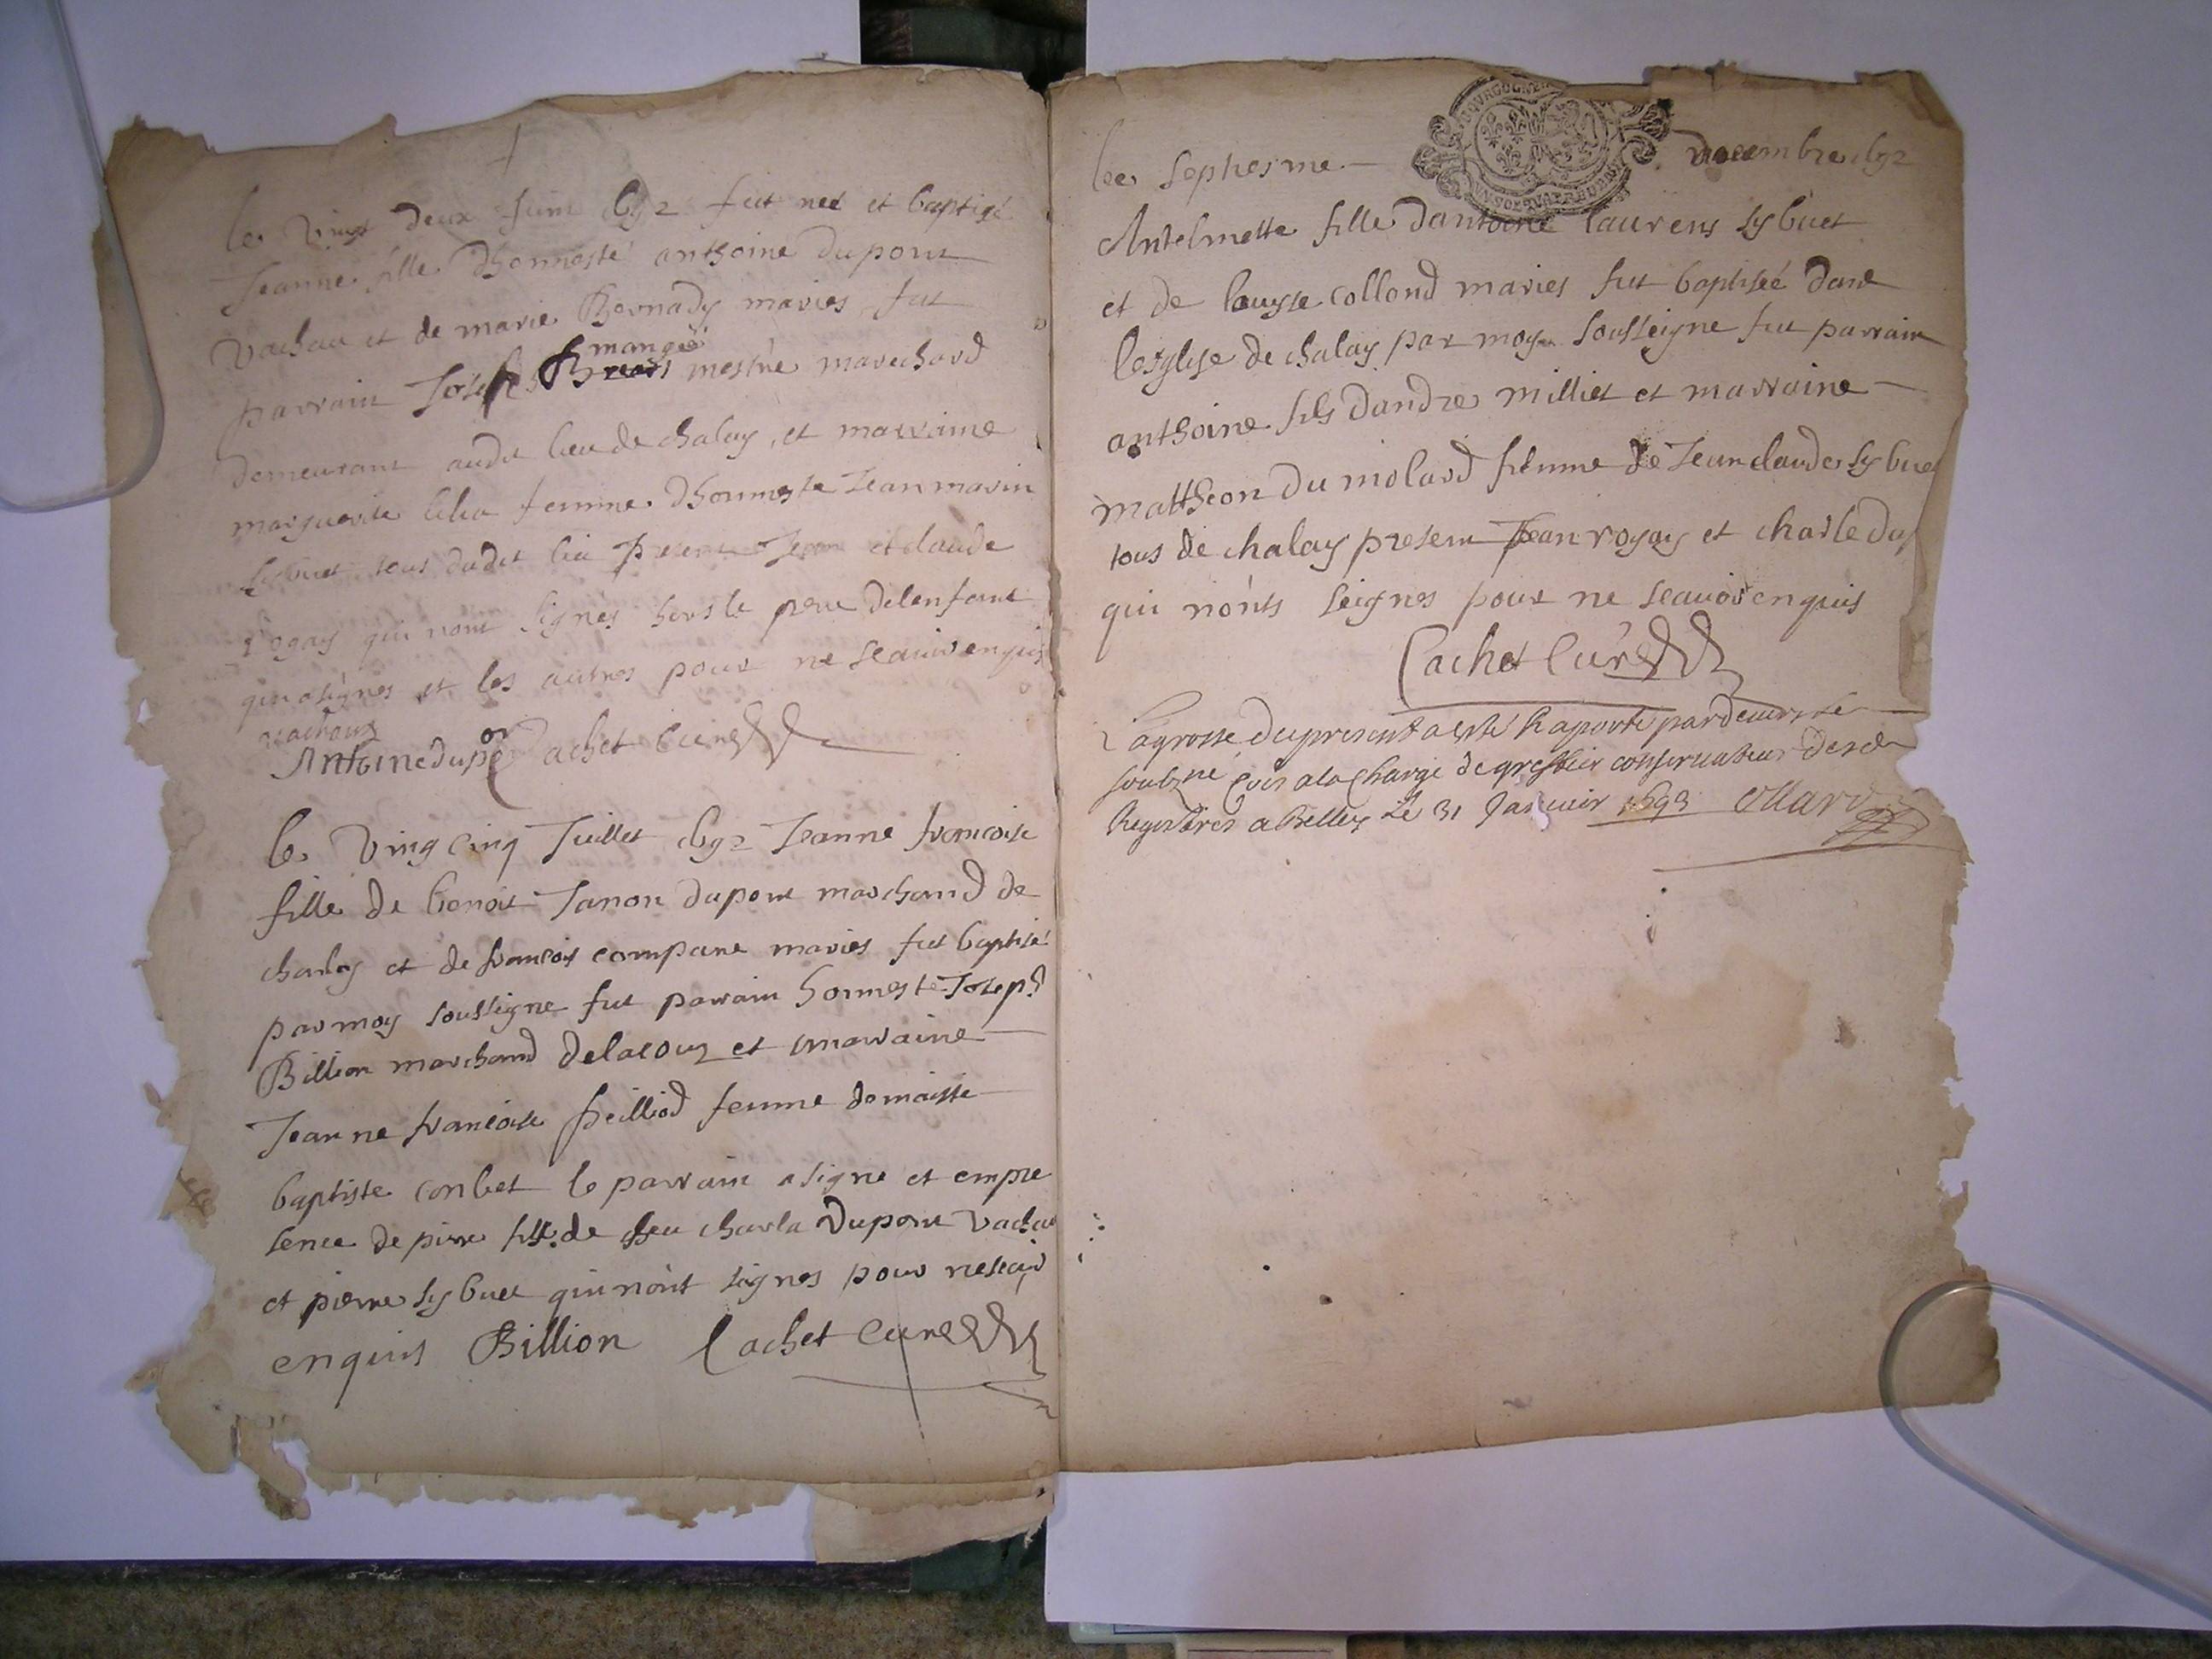 le vingt deux Juin 1692 fut nee et baptisé
Jeanne fille dhonneste anthoine dupont
vachau et de marie Bernady maries fut
mangé
parrain Joseph mestre marechard
demeurant audit lieu de chalay, et marraine
marguerite femme dhonneste Jean marin
Lybuet tous dudit lieu present Jean et claude
rogay qui nont signes hors le pere delenfant
qui a signes et les autres pour ne scauoir enquis
vachoux
Antoine dupon Cachet Cure
le Ving Cinq Juillet 1692 Jeanne francoise
fille de benoit Janon dupont marchand de
chalay et de francois compare maries fut baptisé
par moy soussigne fut parrain honneste Joseph
Billion marchand delacoux et marraine
Jeanne francoise peilliod femme de maistre
baptiste conbet le parrain a signe et empre
sence de pierre fils de feu charle Dupont Vachau
et pierre Lybuet qui nont signes pour nescauoir
enquis Billion Cachet Cure
Lee septiesme decembre 1692
BOURGOGNE
Antelmette fille dantoine laurens Lybuet
et de louyse collond maries fut baptiseé dans
lesglise de chalay par moy sousseigne fut parrain
anthoine fils dandre milliet et marraine
mattheon du molard femme de Jeanclaude Lybuet
tous de chalay present Jean rogay et charle du
qui nonts seignes pour ne scauoir enquis
Cachet Curé
La grosse du present a esté Raporté pardeuers le
soubzné commis a la Charge de greffier conseruateur desd
Registres a Belley Le 31 Januier 1693